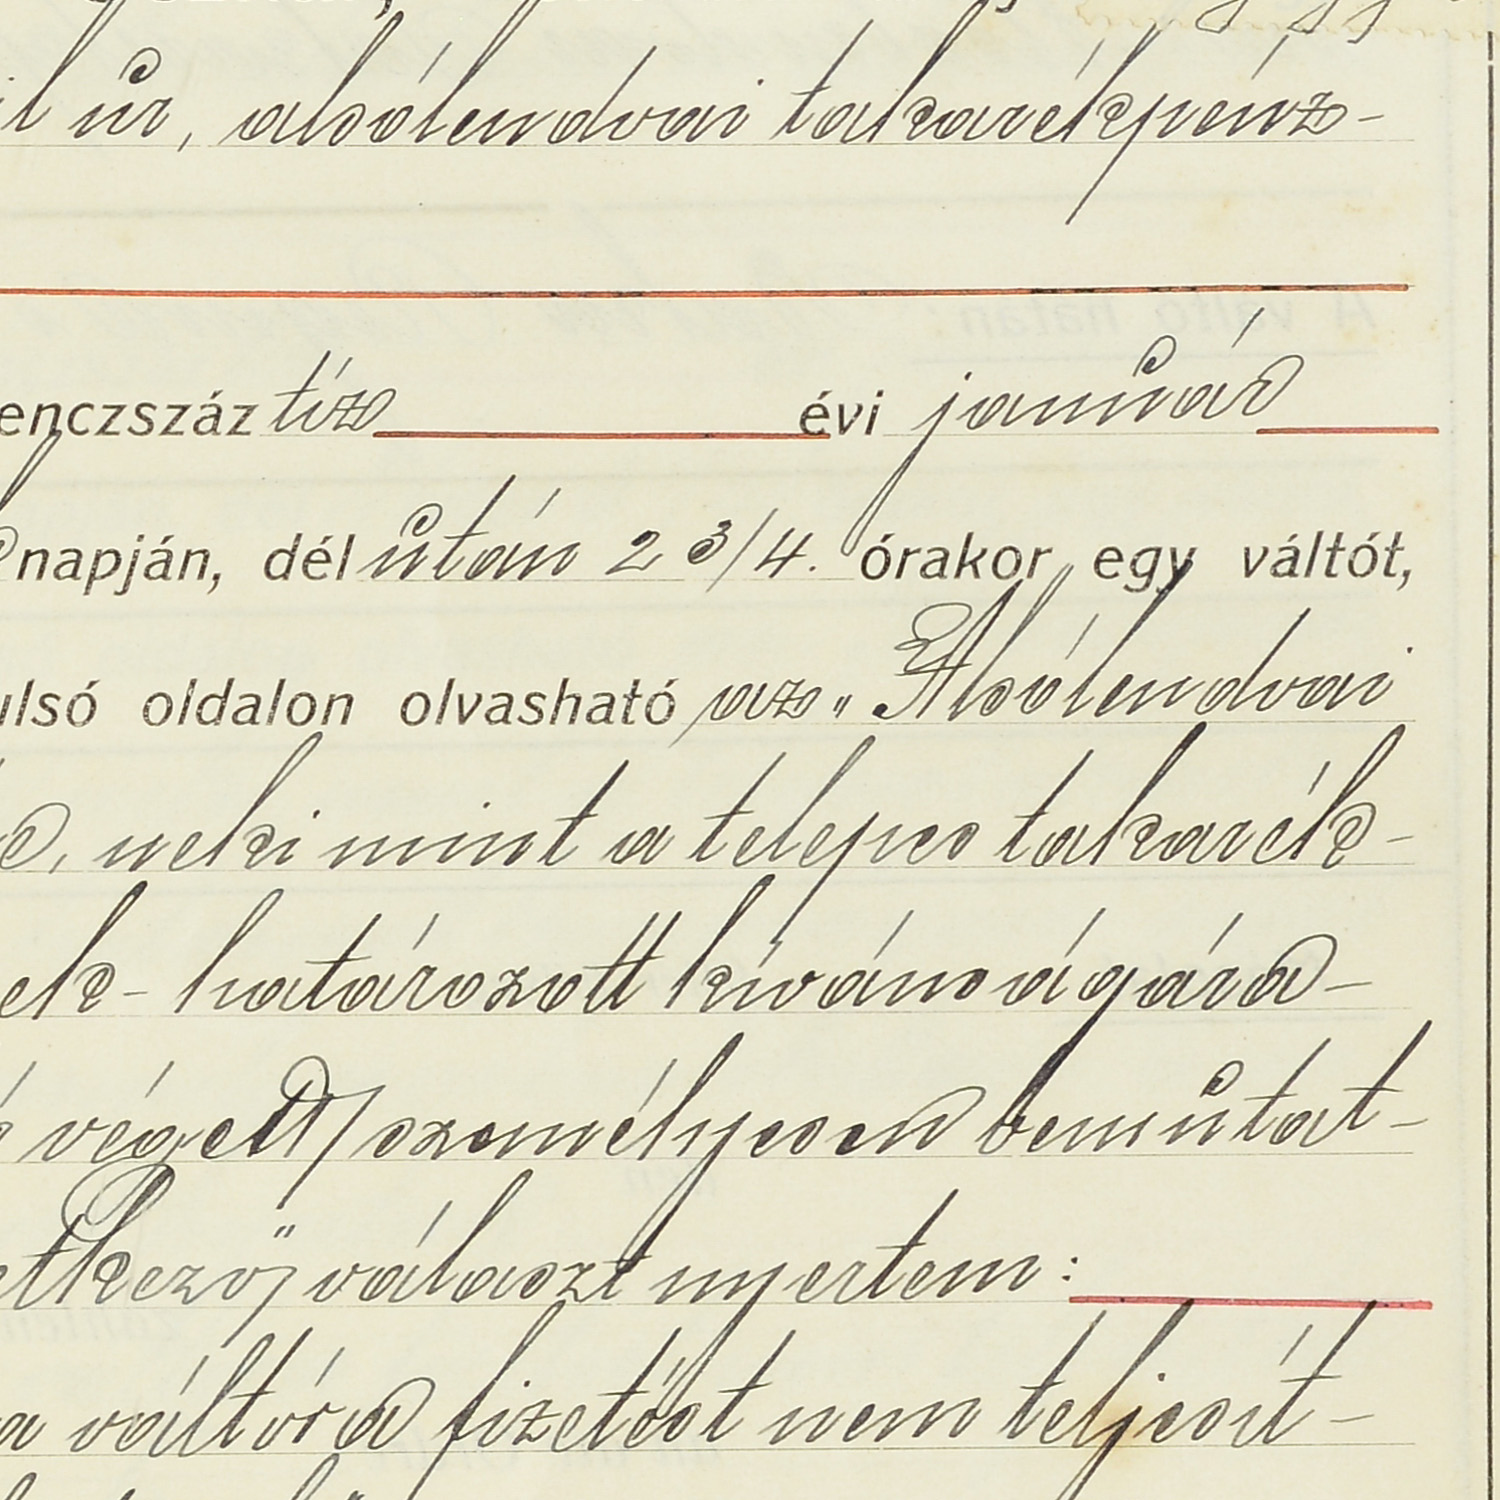 úr, alsólendvai takarékpénz-
enczszáz tíz évi január
napján, dél után 2 3/4. órakor egy váltót,
ulsó oldalon olvasható az „Alsólendvai
neki mint a telepes takarék-
ek- határozott kívánságára-
végett/ személyesen bemutat-
etkező, választ nyertem:
a váltóra fizetést nem teljesít-